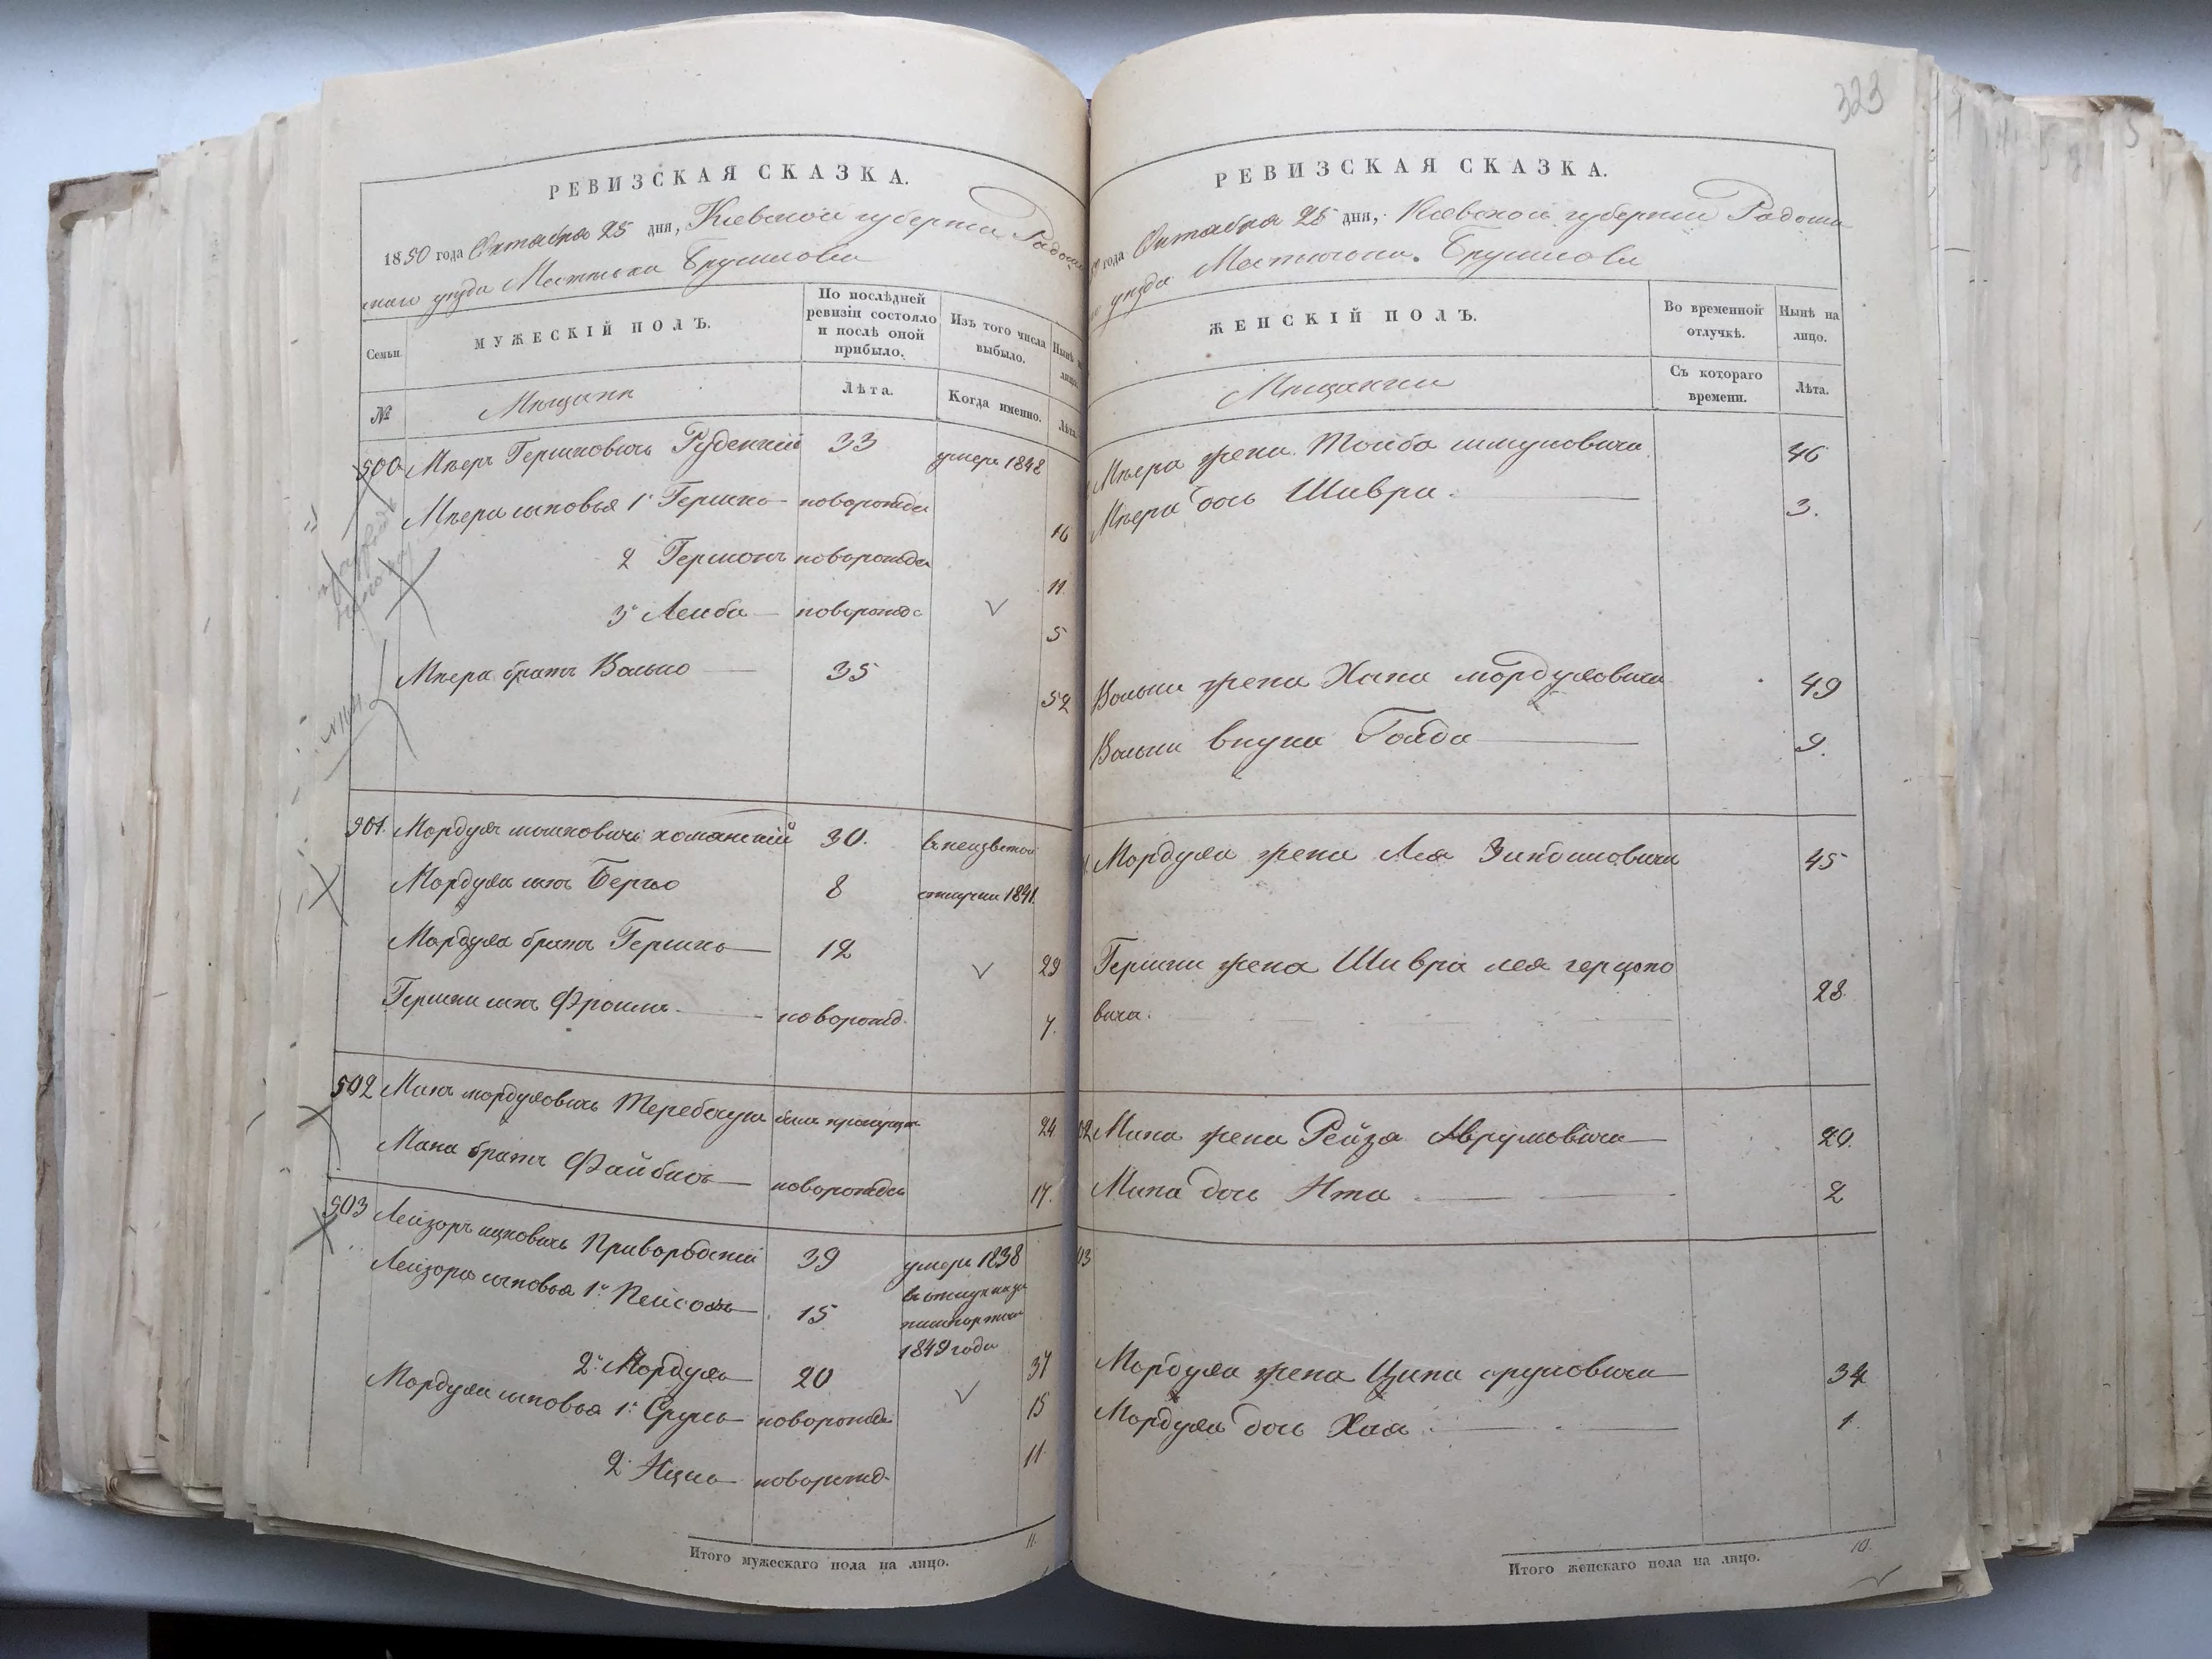 РЕВИЗСКАЯ СКАЗКА.
1850 года Октября 25 дня, Киевской губернии Радомы
скаго уезда Местечка Брусилова
Семьи.
МУЖЕСКІЙ ПОЛЪ.
По послѣдней ревизіи состояло и послѣ оной прибыло.
Изъ того числа выбыло.
Нынѣ на лицо.
№
Мещане
Лѣта.
Когда именно.
Лѣта.
500 Мееръ Гершковичъ Руденкій 33 умеръ 1848
Меера сыновья 1й Гершко новорожден 16
2 Гершонъ новорожден 11
3й Лейба новорожде 5
Меера братъ Волько 35 52
501. Мордухъ мошковичъ хоманскій 30. в неизвестной
Мордуха сынъ Берко 8 отлучки 1841.
Мордуха братъ Гершко 12 29
Гершки сынъ Фроимъ новорожд. 7.
502 Манъ мордуховичъ Теребокуха былъ пропущен 24
Мана братъ Файбишъ новорожден 17.
503 Лейзоръ ицковичъ Приворовскій 39 умеръ 1838
Лейзора сыновья 1й Пейсахъ 15 в отлучке за
пашпортом
1849 года
2й Мордухъ 20 37
Мордуха сыновья 1й Срулъ новорожден 15
2й Ицко новорожд. 11
Итого мужескаго пола на лицо. 11.
323
РЕВИЗСКАЯ СКАЗКА.
года Октября 25 дня, Киевской губернии Радомы
уезда Местечка Брусилова
ЖЕНСКІЙ ПОЛЪ.
Во временной отлучкѣ.
Нынѣ на лицо.
Мещанки
Съ котораго времени.
Лѣта.
Меера жена Тойба шмулевичева 46
Меера дочь Шивра 3.
Волька жена Хана мордуховича 49
Волька внука Гольда 9.
Мордуха жена Лея 45
Гершки жена Шивра лея герцко
вича. 28
02 Мана жена Рейза Аврумовича 20.
Мана дочь Ита 2
03
Мордуха жена Ципа сруловича 34
Мордуха дочь Хая 1.
Итого женскаго пола на лицо. 10.